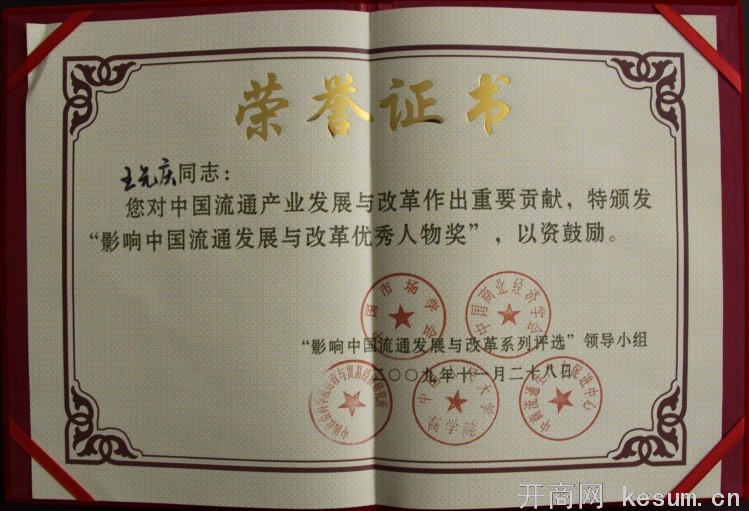 荣誉证书
王先庆同志：
您对中国流通产业发展与改革作出重要贡献，特颁发
“影响中国流通发展与改革优秀人物奖”，以资鼓励。
中国市场学会
中国商业经济学会
“影响中国流通发展与改革系列评选”领导小组
二〇〇九年十一月二十八日
中国社会科学院财政与贸易经济研究所
商学院
开商网 kesum.cn